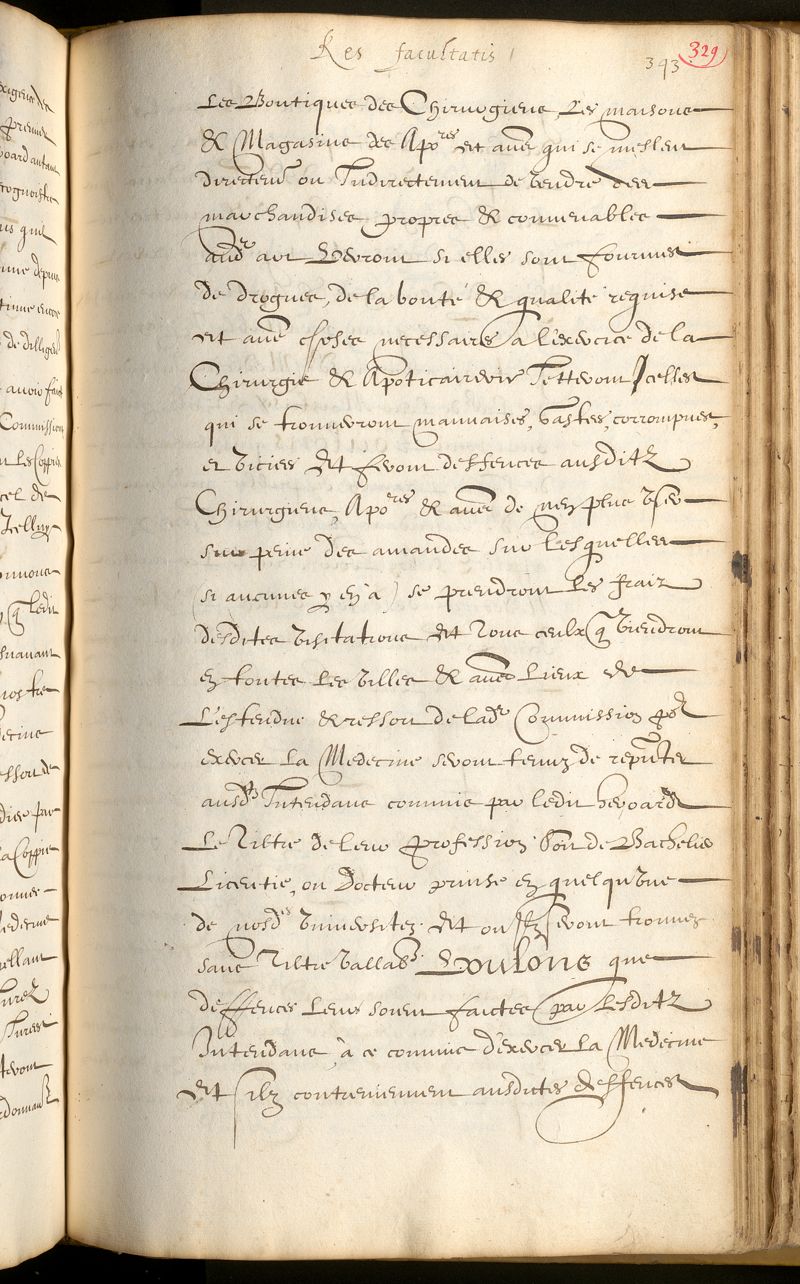 Res facultatis
343 329
Les Boutiques des Chirurgiens, Les maisons
& Magasins des Apo.res Et au.es qui se meslent
directem.t ou Indirectement de vendre des
marchandises propres & convenables
aud.t art Verront si elles sont fournies
de drogues, de la bonté & qualité requise
Et au.es choses necessaires a l'exercice de la
Chirurgie & Apoticairerie Jetteront Jcelles
qui se trouveront mauvaises, gastes, corrompues,
et viciees Et feront deffences ausditz
Chirurgiens, Apo.res & au.es de n'en plus user
sur peine des amandes sur lesquelles
(si aucunes y en a) se prendront les fraiz
desdites visitations Et Tous ceulx q viendront
en toutes les villes & au.es Lieux de
L'estendue & ressort de lad.e Commission po.r
exercer la Medecine seront tenuz de repn.ter
ausd.s Intendans commis par ledit heroard
Le Tiltre de leur profession soit de Bachelier
Licentie, ou Docteur prinse en quelqu'une
de nosd.s universitez Et ou Ilz seront trouvez
sans Tiltre vallab.e Voulons que
deffences leur soient faictes par lesditz
Intendans, à ce commis d'exercer la Medecine
Et s'ilz contreviennent ausdictes deffences